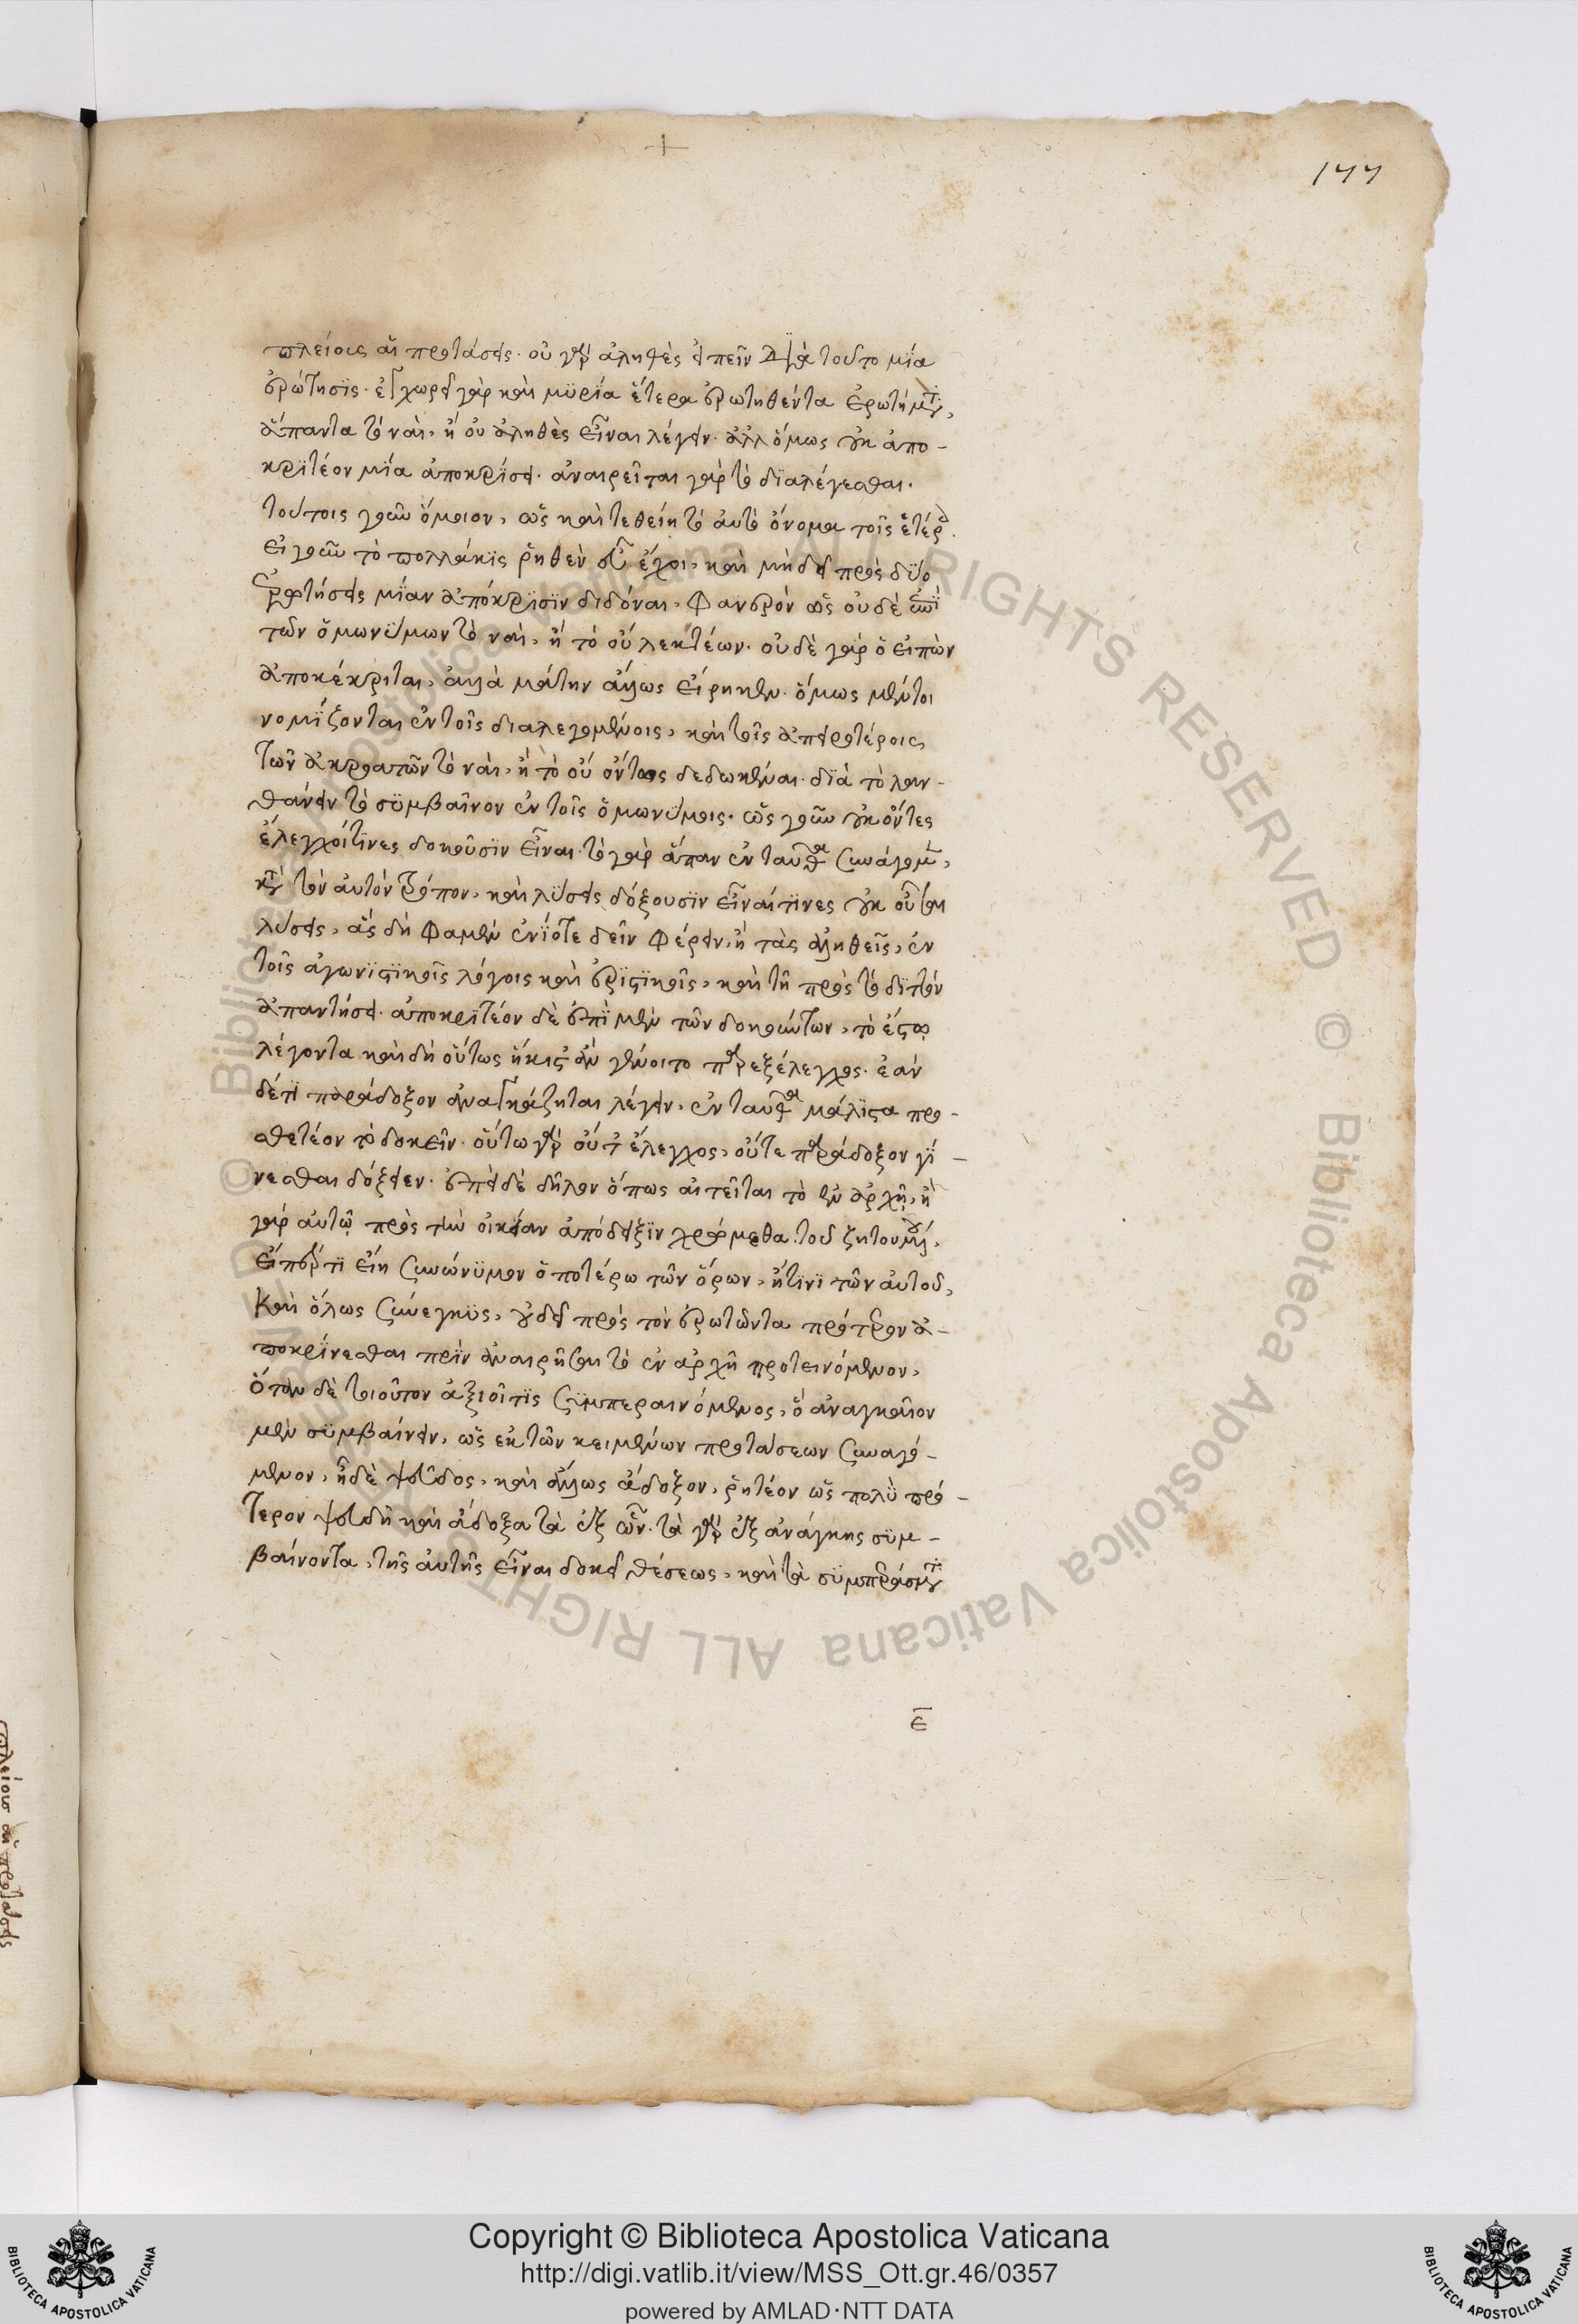 177
πλείους αἱ προτάσεις. οὐ γὰρ ἀληθὲς εἰπεῖν διὰ τοῦτο μΐα
ἐρώτησϊς. ἐγχωρεῖ γὰρ καὶ μϋρία ἕτερα ἐρωτηθέντα ἐρωτήματι,
ἅπαντα τὸ ναὶ, ἢ οὐ ἀληθὲς εἶναι λέγειν. ἀλλ' ὅμως οὐκ ἀπο-
κρϊτέον μία ἀποκρίσει. ἀναιρεῖται γὰρ τὸ δϊαλέγεσθαι.
τούτοις γοῦν ὅμοιον, ὡς καὶ τεθείη τὸ αὐτὸ ὄνομα τοῖς ἑτέροις.
εἰ γοῦν τὸ πολλάκϊς ῥηθὲν εὖ ἔχοι, καὶ μὴ δεῖ πρὸς δϋο
ἐρωτήσεις μΐαν ἀπόκρϊσϊν διδόναι, φανερὸν ὡς οὐδὲ ἐπὶ
τῶν ὁμωνύμων τὸ ναὶ, ἢ τὸ οὐ λεκτέων. οὐδὲ γὰρ ὁ εἰπὼν
ἀποκέκριται, ἀλλὰ μάτην ἄλλως εἴρηκεν. ὅμως μέντοι
νομΐζονται ἐν τοῖς διαλεγομένοις, καὶ τοῖς ἀπειροτέροις
τῶν ἀκροατῶν τὸ ναὶ, ἢ τὸ οὐ ὄντως δεδωκέναι. δϊὰ τὸ λαν-
θάνειν τὸ σϋμβαῖνον ἐν τοῖς ὁμωνύμοις. ὡς γοῦν οὐκ ὄντες
ἔλεγχοί τϊνες δοκοῦσϊν εἶναι. τὸ γὰρ ἅπαν ἐνταῦθα συνάγομεν,
κατὰ τὸν αὐτὸν τρόπον, καὶ λύσεις δόξουσϊν εἶναί τϊνες οὐκ οὖσαι
λύσεις, ἃς δή φαμεν ἐνΐοτε δεῖν φέρειν, ἢ τὰς ἀληθεῖς, ἐν
τοῖς ἀγωνϊστϊκοῖς λόγοις καὶ ἐρϊστϊκοῖς, καὶ τῇ πρὸς τὸ δϊττὸν
ἀπαντήσει. ἀποκρϊτέον δὲ ἐπὶ μὲν τῶν δοκούντων, τὸ ἔστω
λέγοντα καὶ δὴ οὕτως ἥκιστ' ἂν γένοιτο παρεξέλεγχος. ἐὰν
δέ τι παράδοξον ἀναγκάζηται λέγειν, ἐνταῦθα μάλϊστα προ-
σθετέον τὸ δοκεῖν. οὕτω γὰρ οὔτ' ἔλεγχος, οὔτε παράδοξον γί-
νεσθαι δόξειεν. ἐπεὶ δὲ δῆλον ὅπως αἰτεῖται τὸ ἐν ἀρχῇ, ἢ
γὰρ αὐτῷ πρὸς τὴν οἰκείαν ἀπόδειξϊν χρώμεθα τοῦ ζητουμένου,
εἴπερ τϊ εἴη συνώνϋμον ὁποτέρω τῶν ὅρων, ἤ τϊνϊ τῶν αὐτοῦ,
καὶ ὅλως σύνεγγϋς, οὐ δεῖ πρὸς τὸν ἐρωτῶντα πρότερον ἀ-
ποκρίνεσθαι πρὶν ἀναιρῆσαι τὸ ἐν ἀρχῇ προτεινόμενον,
ὅταν δὲ τοιοῦτον ἀξιοῖ τϊς σϋμπεραινόμενος, ὃ ἀναγκαῖον
μὲν σϋμβαίνειν, ὡς ἐκ τῶν κειμένων προτάσεων συναγό-
μενον, ᾖ δὲ ψεῦδος, καὶ ἄλλως ἄδοξον, ῥητέον ὡς πολὺ πρό-
τερον ψευδῆ καὶ ἄδοξα τὰ ἐξ ὧν. τὰ γὰρ ἐξ ἀνάγκης σϋμ-
βαίνοντα, τῆς αὐτῆς εἶναι δοκεῖ θέσεως, καὶ τὰ σϋμπεράσματα
ε
Copyright © Biblioteca Apostolica Vaticana
http://digi.vatlib.it/view/MSS_Ott.gr.46/0357
powered by AMLAD·NTT DATA